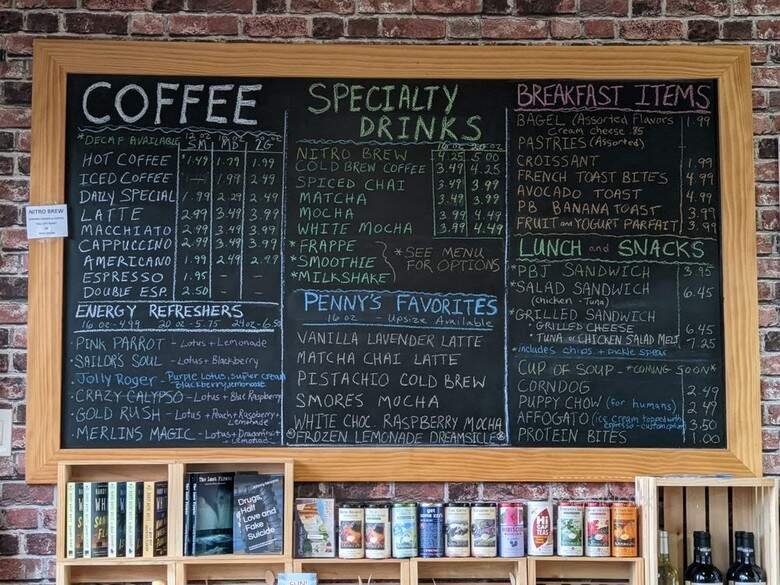 COFFEE
*DECAF AVAILABLE 12 oz SM 16 oz MD 20 oz LG
HOT COFFEE 1.49 1.79 1.99
ICED COFFEE — 1.99 2.49
DAILY SPECIAL 1.99 2.29 2.49
LATTE 2.99 3.49 3.99
MACCHIATO 2.99 3.49 3.99
CAPPUCCINO 2.99 3.49 3.99
AMERICANO 1.99 2.49 2.99
ESPRESSO 1.95
DOUBLE ESP. 2.50
ENERGY REFRESHERS
16 oz - 4.99 20 oz - 5.75 24oz - 6.50
PINK PARROT - Lotus + Lemonade
*SAILOR'S SOUL - Lotus + Blackberry
Jolly Roger - Purple Lotus, Super cream
Blackberry, lemonade
CRAZY CALYPSO - Lotus + Blue Raspberry
*GOLD RUSH - Lotus + Peach + Raspberry +
Lemonade
*MERLINS MAGIC - Lotus + Dragonfruit +
Lemonade
SPECIALTY
DRINKS
16 oz 20 oz
NITRO BREW 4.25 5.00
COLD BREW COFFEE 3.49 4.25
SPICED CHAI 3.49 3.99
MATCHA 3.49 3.99
MOCHA 3.99 4.49
WHITE MOCHA 3.99 4.49
* FRAPPE
* SMOOTHIE
* MILKSHAKE
* SEE MENU
FOR OPTIONS
PENNY'S FAVORITES
16 oz - Upsize Available
VANILLA LAVENDER LATTE
MATCHA CHAI LATTE
PISTACHIO COLD BREW
SMORES MOCHA
WHITE CHOC. RASPBERRY MOCHA
FROZEN LEMONADE DREAMSICLE
BREAKFAST ITEMS
BAGEL (Assorted Flavors 1.99
Cream Cheese .85
PASTRIES (Assorted)
CROISSANT 1.99
FRENCH TOAST BITES 4.99
AVOCADO TOAST 4.99
PB BANANA TOAST 3.99
FRUIT and YOGURT PARFAIT 3.99
LUNCH and SNACKS
*PBJ SANDWICH 3.95
*SALAD SANDWICH 6.45
(chicken - Tuna)
*GRILLED SANDWICH
· GRILLED CHEESE 6.45
· TUNA or CHICKEN SALAD MELT 7.25
*includes chips + pickle spear
CUP OF SOUP - *COMING SOON*
CORNDOG 2.49
PUPPY CHOW (for humans) 2.49
AFFOGATO (ice cream topped with 3.50
PROTEIN BITES 1.00
NITRO BREW
The Lost Pirate
Drugs,
Half
Love and
Fake
Suicide
HI
TEAS